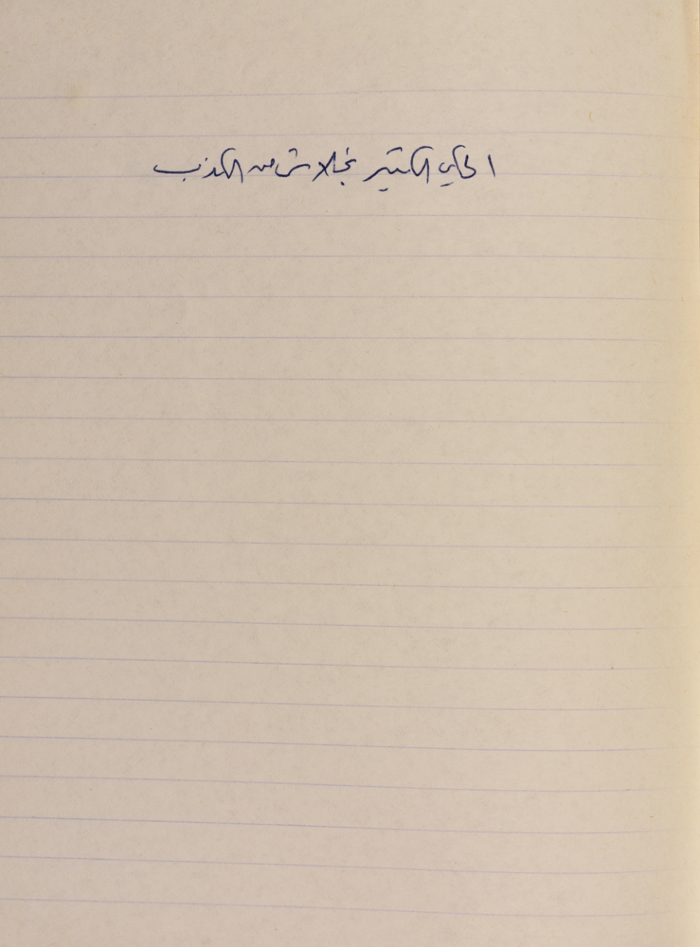 الحكي الكتير بخلاش من الكذب